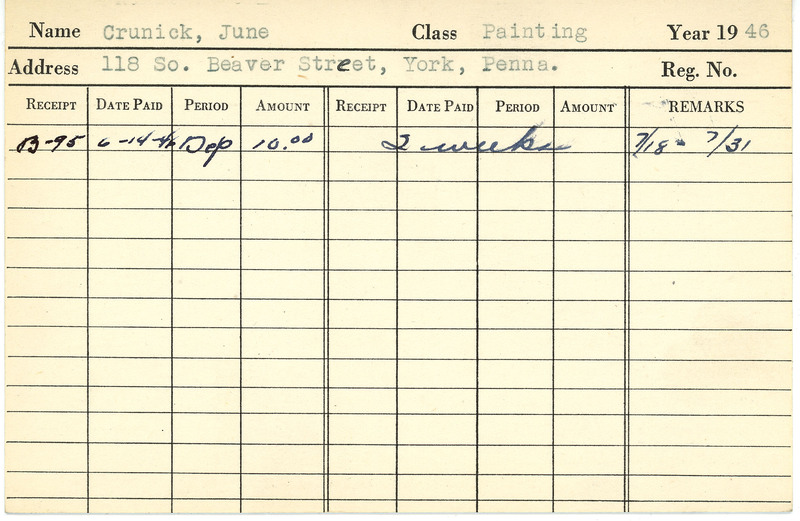 Name Crunick, June Class Painting Year 19 46
Address 118 So. Beaver Street, York, Penna. Reg. No.
RECEIPT DATE PAID PERIOD AMOUNT RECEIPT DATE PAID PERIOD AMOUNT REMARKS
B-95 6-14-46 Dep 10.00 2 weeks 7/18 - 7/31